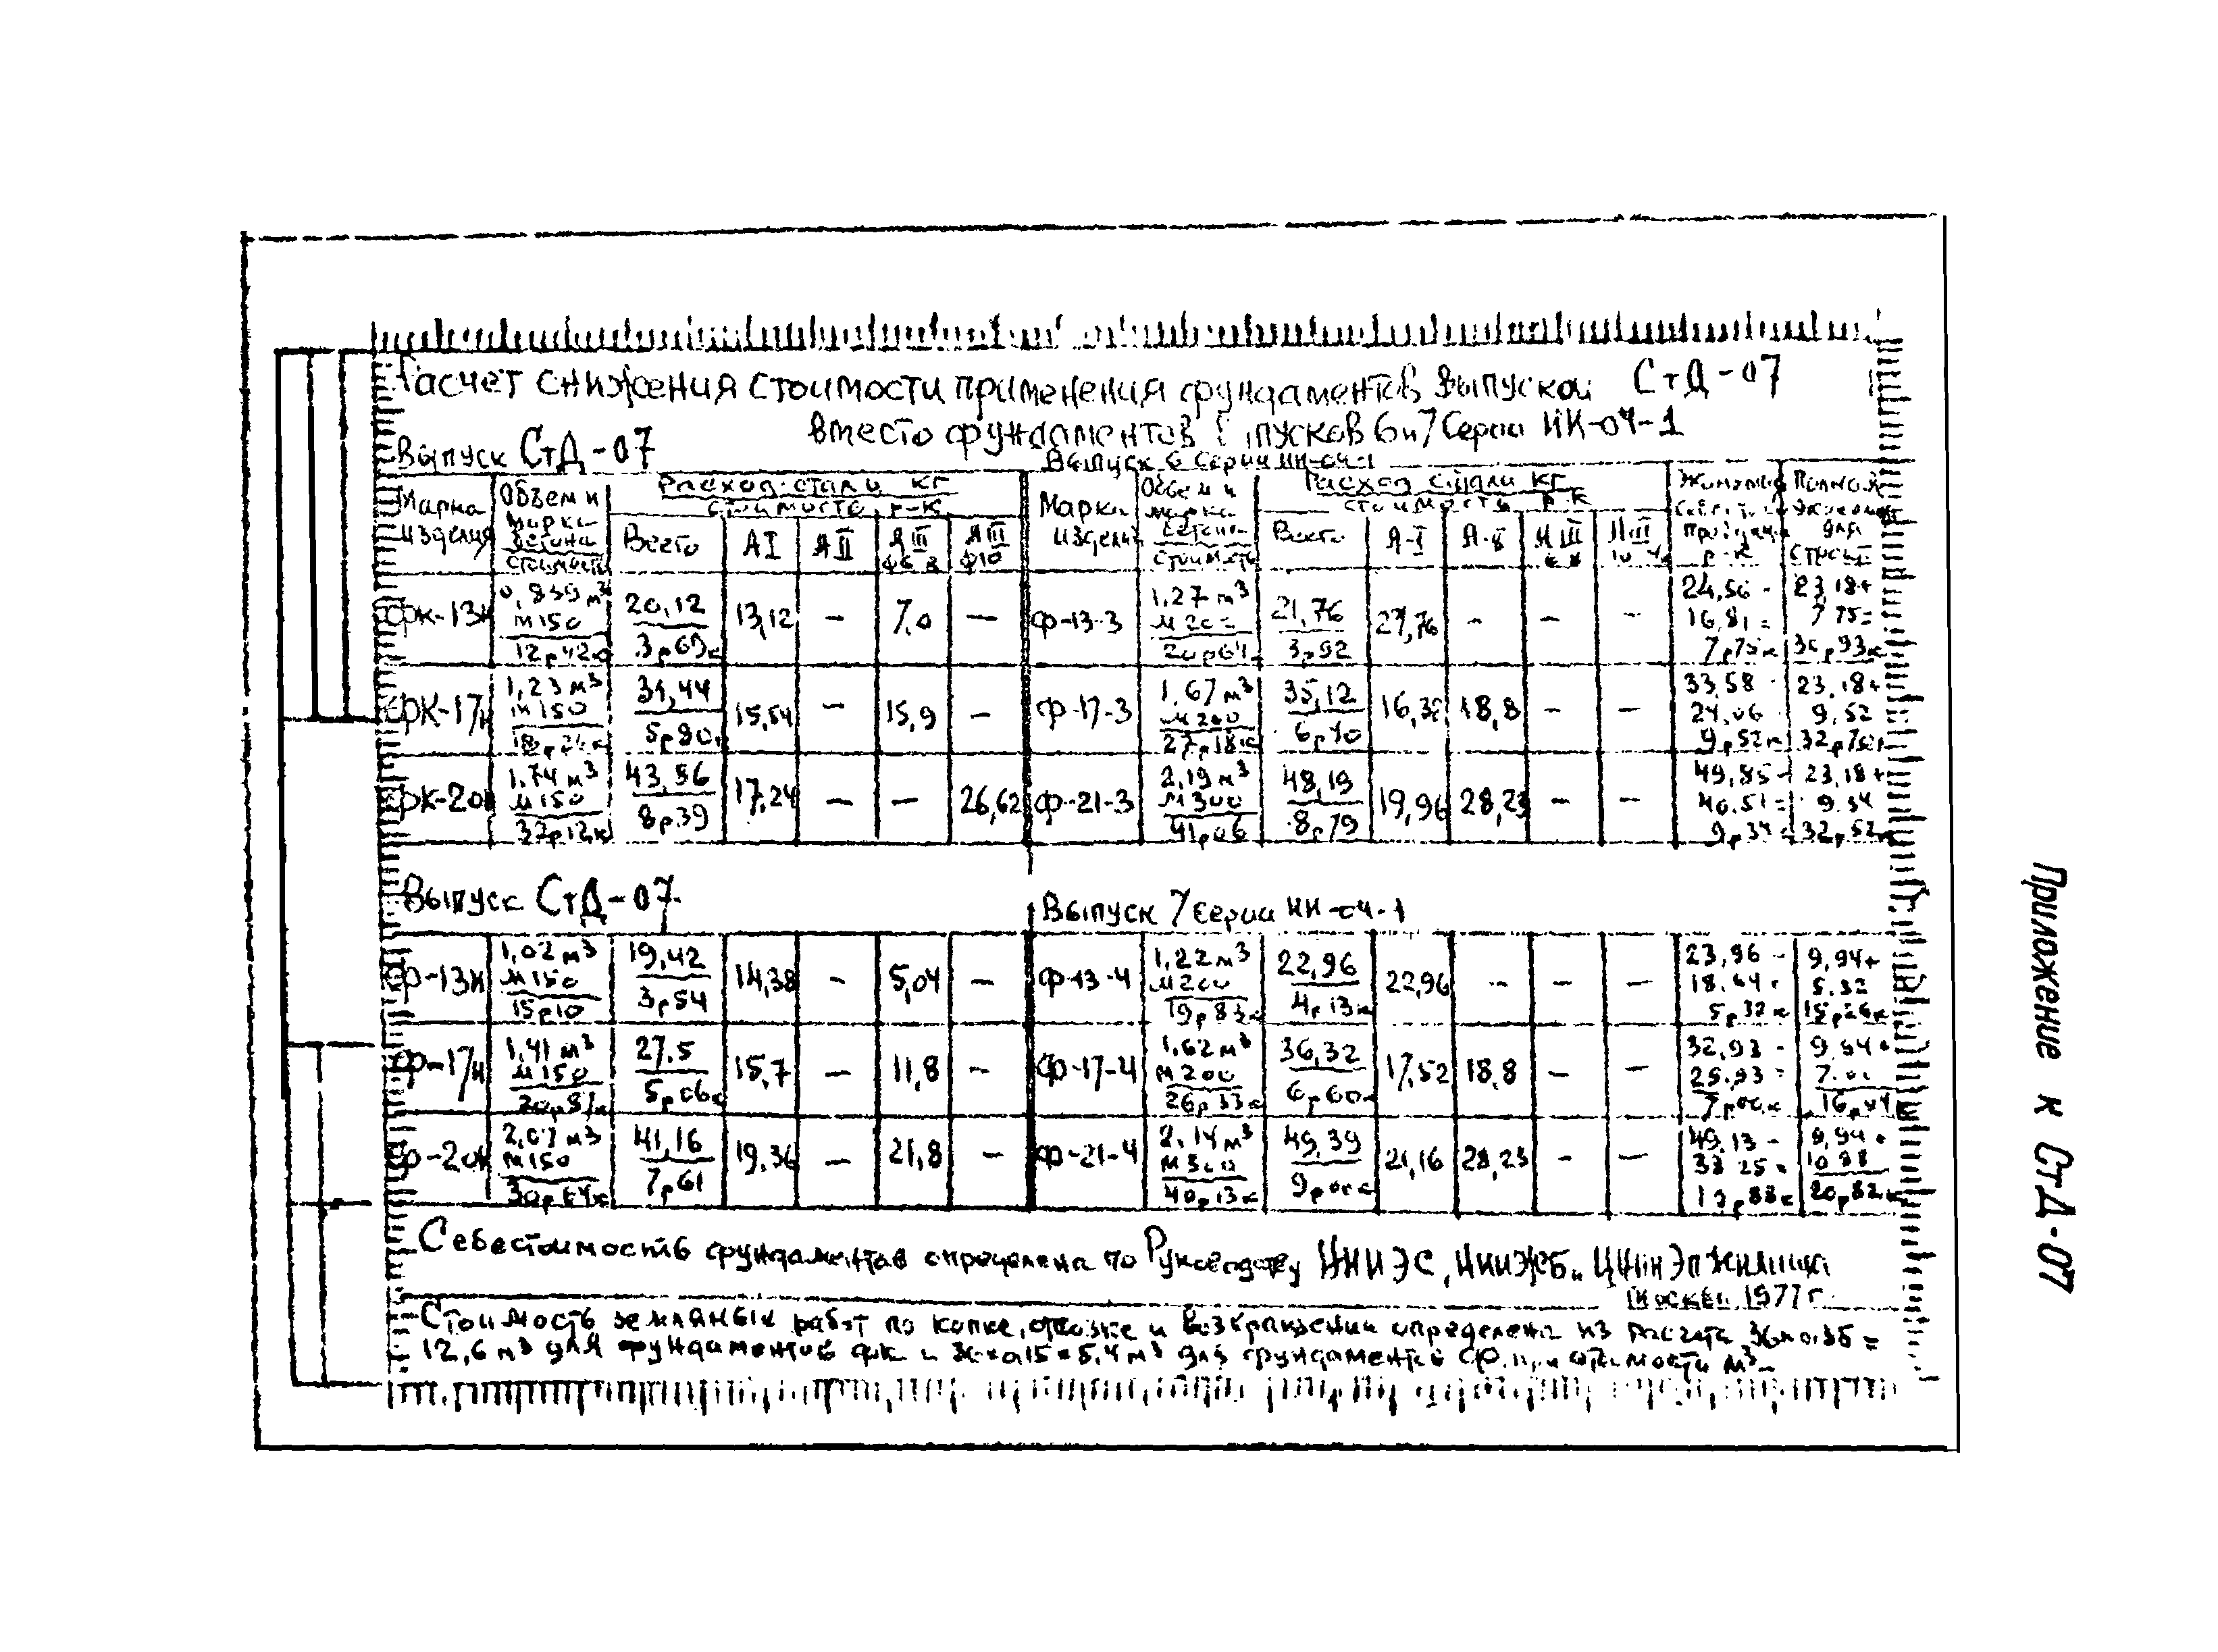 Расчет снижения стоимости применения фундаментов выпуской СтД-07
вместо фундаментов выпусков 6 и 7 серии ИИ-04-1
Выпуск СтД-07
Выпуск 6 серии ИИ-04-1
Марка изделия | Объем и марка бетона | стоимость | Расход стали кг | стоимость р-к | Всего | АI | АII | АIII ф6 8 | АIII ф10 | Марка изделия | Объем и марка бетона | стоимость | Расход стали кг | стоимость р-к | Всего | А-I | А-II | АIII | АIII | р-к | Полная экономия для
ФК-13н | 0,839 м³ М150 | 20,12 | 3р69к | 13,12 | – | 7,0 | – | Ф-13-3 | 1,27 м³ М200 | 20р64к | 21,76 | 3р92 | 21,76 | - | – | - | 24,56 - 16,81 = 7р75к | 23,18+ 7 75= 30р93к
ФК-17н | 1,23 м³ М150 | 31,44 | 5р90к | 15,54 | – | 15,9 | – | Ф-17-3 | 1,67 м³ М200 | 27р18к | 35,12 | 6р40 | 16,32 | 18,8 | – | – | 33,58 - 24,06 9р52к | 23,18+ 9,52 32р70к
ФК-20н | 1,74 м³ М150 | 32р12к | 43,86 | 8р39 | 17,24 | – | – | 26,62 | Ф-21-3 | 2,19 м³ М300 | 41р06 | 48,19 | 8р79 | 19,96 | 28,23 | – | – | 49,85 - 40,51 = 9р34к | 23,18+ 9,34 32р52к
Выпуск СтД-07
Выпуск 7 серии ИИ-04-1
Ф-13н | 1,02 м³ М150 | 15р10 | 19,42 | 3р54 | 14,38 | – | 5,04 | – | Ф-13-4 | 1,22 м³ М200 | 19р83к | 22,96 | 4р13к | 22,96 | - | – | – | 23,96 - 18,64 = 5р32к | 9,94+ 5,32 15р26к
Ф-17н | 1,41 м³ М150 | 20р87к | 27,5 | 5р06к | 15,7 | – | 11,8 | – | Ф-17-4 | 1,62 м³ М200 | 26р33к | 36,32 | 6р60к | 17,52 | 18,8 | – | – | 32,93 - 25,93 = 7р00к | 9,94+
Ф-20н | 2,07 м³ М150 | 30р64к | 41,16 | 7р61 | 19,36 | – | 21,8 | – | Ф-21-4 | 2,14 м³ М300 | 40р13к | 49,39 | 9р00к | 21,16 | 28,23 | - | – | 49,13 - 38 25 = | 9,94+ 10 88 20р82к
Себестоимость фундаментов определена по Руководству ЦНИИЭС, НИИЖБ и ЦНИИЭПжилища
Москва 1977 г.
Стоимость земляных работ по копке, отвозке и определена из расчета 36×0,35 =
12,6 м³ для фундаментов ФК и 36×0,15=5,4 м³ для фундаментов Ф при стоимости м³–
Приложение к СтД-07